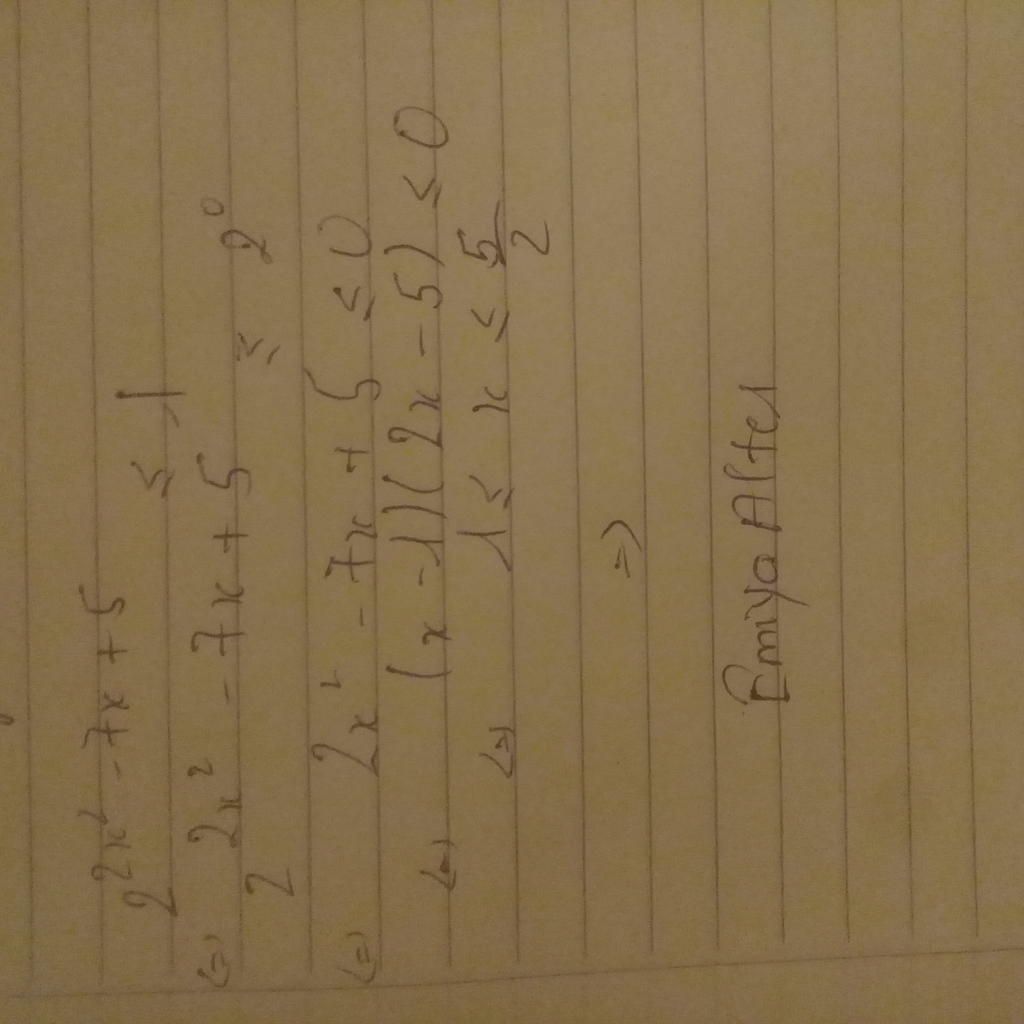 2^{2x² - 7x + 5} ≤ 1
<=> 2^{2x² - 7x + 5} ≤ 2⁰
<=> 2x² - 7x + 5 ≤ 0
<=> (x - 1)(2x - 5) ≤ 0
<=> 1 ≤ x ≤ 5/2
=>
Emiya Alter